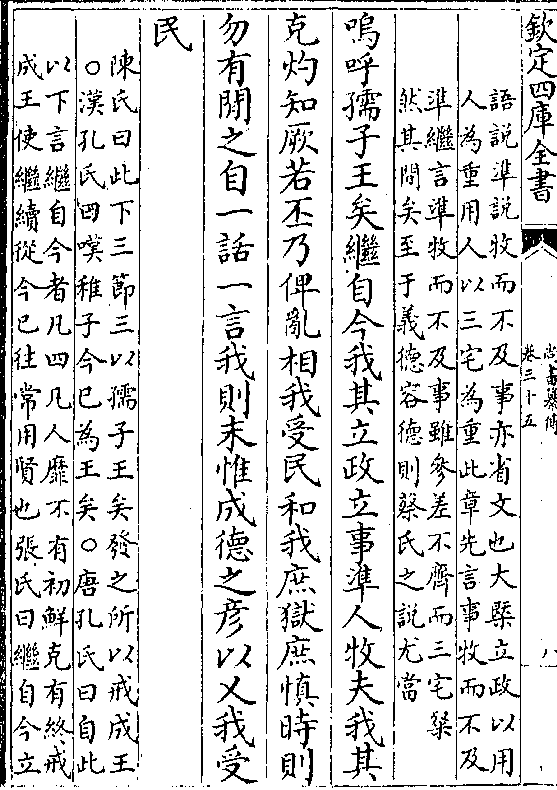 欽定四庫全書
尚書纂傳
卷三十五
八
語說準說牧而不及事亦省文也大槩立政以用
人為重用人以三宅為重此章先言事牧而不及
準繼言準牧而不及事雖參差不齊而三宅粲
然其間矣至于義德容德則蔡氏之說尤當
嗚呼孺子王矣繼自今我其立政立事準人牧夫我其
克灼知厥若丕乃俾亂相我受民和我庶獄庶慎時則
勿有間之自一話一言我則末惟成德之彥以乂我受
民
陳氏曰此下三節三以孺子王矣發之所以戒成王
○漢孔氏曰嘆稚子今已為王矣○唐孔氏曰自此
以下言繼自今者凡四凡人靡不有初鮮克有終戒
成王使繼續從今已往常用賢也張氏曰繼自今立